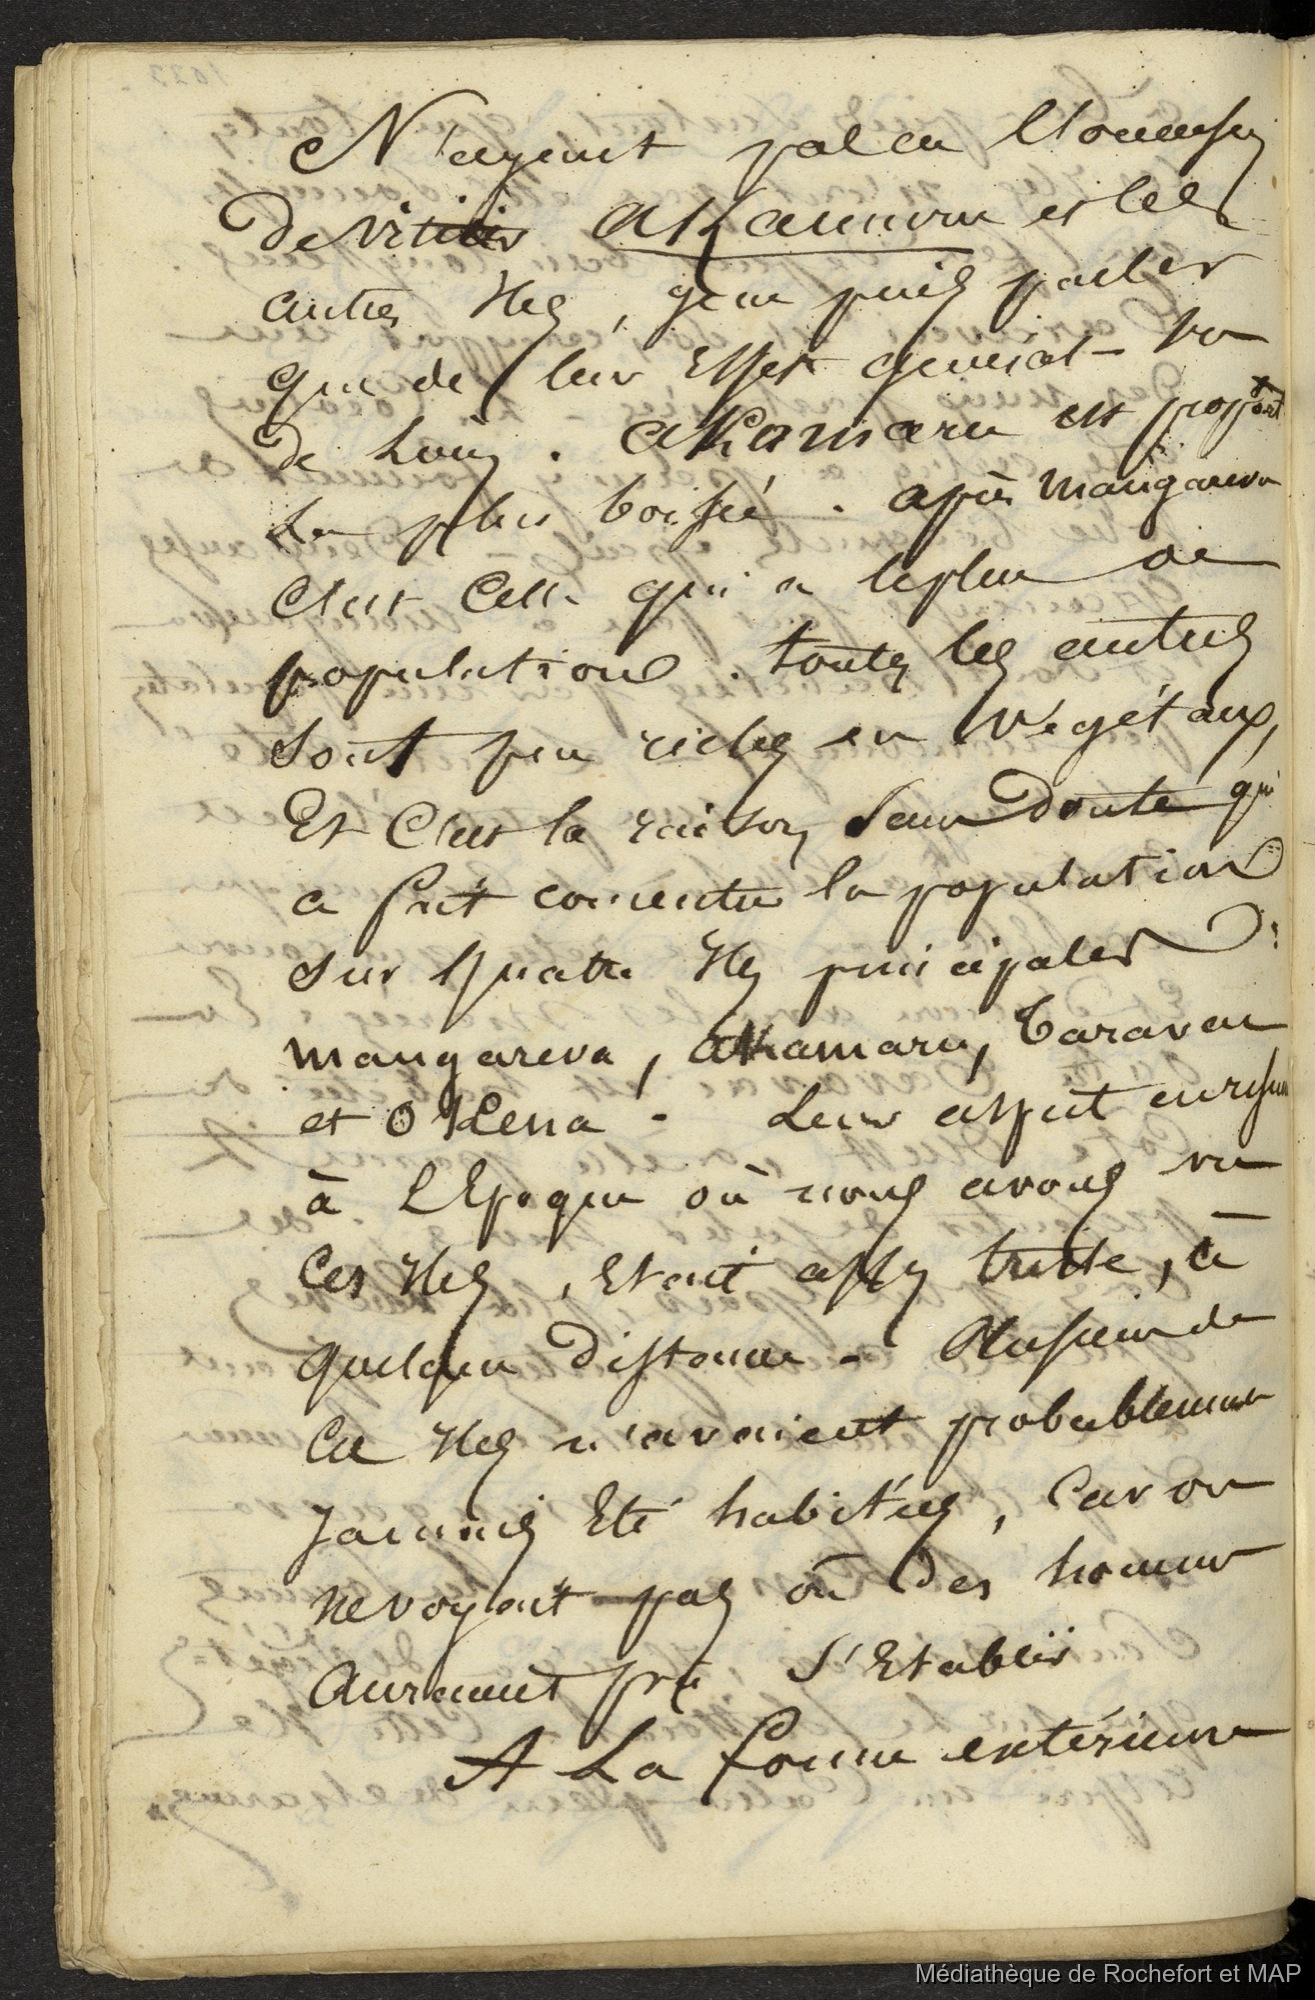 N'ayant pas eu l'occasion
de visiter aKamarou et les
autres Iles, je ne puis parler
que de leur Effet general vu
de Loin. aKamaru est proport
La plus boisée. après Mangareva
C'est Celle qui a le plus de
population. toutes les autres
sont peu riches en Vegétaux,
Et C'est la raison Sans Doute qui
a fait concentrer la population
sur quatre Iles principales :
Mangareva, aKamaru, Taravai
et OKena. Leur aspect
à L'Epoque où nous avons vu
Ces Iles, Etait assez triste, à
quelque Distance. Plusieurs de
Ces Iles n'avaient probablement
Jamais Eté habitées, Car on
ne voyait pas où Des hommes
Auraient pu S'Etablir
A La forme extérieure
Médiathèque de Rochefort et MAP